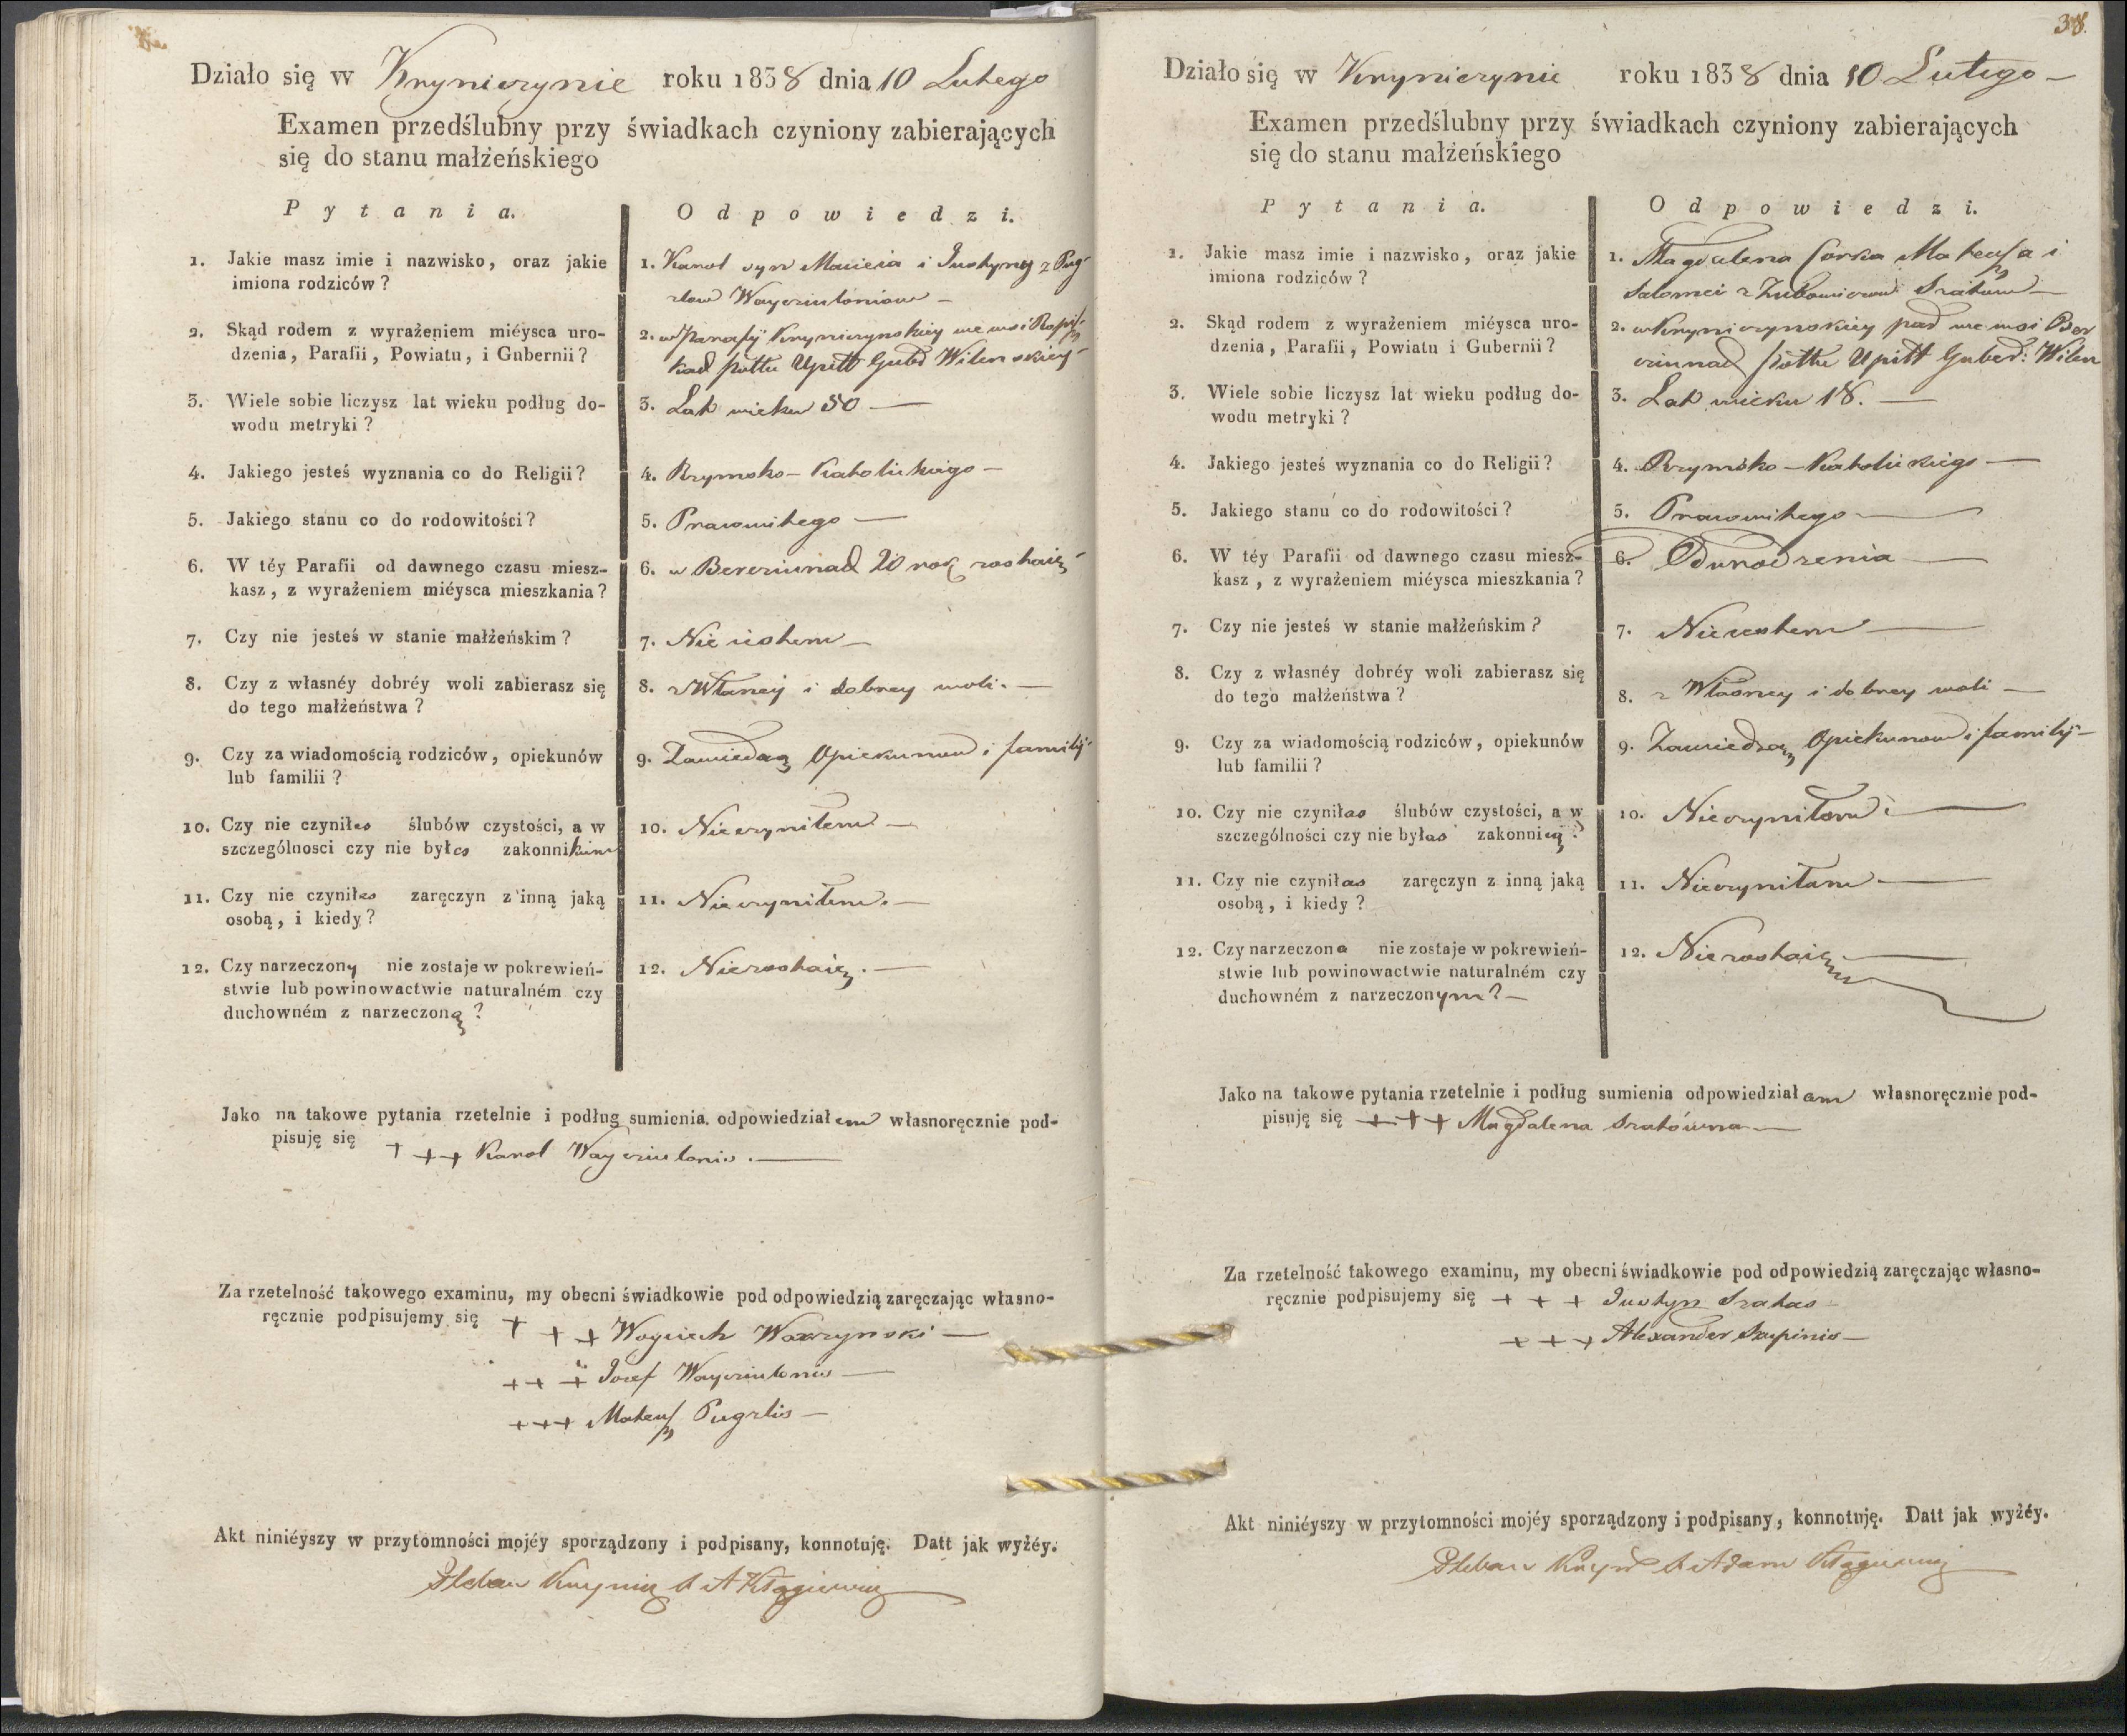 Działo się w Kryniczynie roku 1838 dnia 10 Lutego
Examen przedślubny przy świadkach czyniony zabierających
się do stanu małżeńskiego
Pytania.
Odpowiedzi.
1. Jakie masz imie i nazwisko, oraz jakie
imiona rodziców?
1. Karol syn Macieia i Justyny z Pug-
zlow Wayciulaniow —
2. Skąd rodem z wyrażeniem miéysca uro-
dzenia, Parafii, Powiatu, i Gubernii?
2. w Parafij Kryniczynskiey we wsi
Pottu Upitt Gub Wilenskiey
3. Wiele sobie liczysz lat wieku podług do-
wodu metryki?
3. Lat wieku 30 —
4. Jakiego jesteś wyznania co do Religii?
4. Rzymsko-Katolickiego —
5. Jakiego stanu co do rodowitości?
5. Prawowitego —
6. W téy Parafii od dawnego czasu miesz-
kasz, z wyrażeniem miéysca mieszkania?
6. w Berciunad 20 rok zostaię
7. Czy nie jesteś w stanie małżeńskim?
7. Nie iestem —
8. Czy z własnéy dobréy woli zabierasz się
do tego małżeństwa?
8. z Własney i dobrey woli. —
9. Czy za wiadomością rodziców, opiekunów
lub familii?
9. Zawiedzą Opiekunow i familij
10. Czy nie czyniłes ślubów czystości, a w
szczególnosci czy nie byłes zakonnikiem
10. Nieczyniłem —
11. Czy nie czyniłes zaręczyn z inną jaką
osobą, i kiedy?
11. Nieczyniłem. —
12. Czy narzeczony nie zostaje w pokrewień-
stwie lub powinowactwie naturalném czy
duchowném z narzeczoną?
12. Niezostaię. —
Jako na takowe pytania rzetelnie i podług sumienia odpowiedziałem własnoręcznie pod-
pisuję się + + + Karol Wayciulanis. —
Za rzetelność takowego examinu, my obecni świadkowie pod odpowiedzią zaręczając własno-
ręcznie podpisujemy się + + + Woyciech Wawrzynski —
+ + + Jozef Wayciulonis —
+++ Mateusz Pugzlis —
Akt niniéyszy w przytomności mojéy sporządzony i podpisany, konnotuję. Datt jak wyżéy.
Pleban
38.
Działo się w Kryniczynie roku 1838 dnia 10 Lutego —
Examen przedślubny przy świadkach czyniony zabierających
się do stanu małżeńskiego
Pytania.
Odpowiedzi.
1. Jakie masz imie i nazwisko, oraz jakie
imiona rodziców?
1. Magdalena Corka Mateusza i
Salomei z Szatow —
2. Skąd rodem z wyrażeniem miéysca uro-
dzenia, Parafii, Powiatu i Gubernii?
2. w Kryniczynskiey par we wsi Ber
ciunad Pottu Upitt Guber: Wilen
3. Wiele sobie liczysz lat wieku podług do-
wodu metryki?
3. Lat wieku 18. —
4. Jakiego jesteś wyznania co do Religii?
4. Rzymsko-Katolickiego —
5. Jakiego stanu co do rodowitości?
5. Prawowitego —
6. W téy Parafii od dawnego czasu miesz-
kasz, z wyrażeniem miéysca mieszkania?
6. Od urodzenia —
7. Czy nie jesteś w stanie małżeńskim?
7. Nie iestem —
8. Czy z własnéy dobréy woli zabierasz się
do tego małżeństwa?
8. z Własney i dobrey woli —
9. Czy za wiadomością rodziców, opiekunów
lub familii?
9. Zawiedzą Opiekunow i familij —
10. Czy nie czyniłas ślubów czystości, a w
szczególności czy nie byłas zakonnicą?
10. Nieczyniłam —
11. Czy nie czyniłas zaręczyn z inną jaką
osobą, i kiedy?
11. Nieczyniłam —
12. Czy narzeczona nie zostaje w pokrewień-
stwie lub powinowactwie naturalném czy
duchowném z narzeczonym? —
12. Niezostaię —
Jako na takowe pytania rzetelnie i podług sumienia odpowiedziałam własnoręcznie pod-
pisuję się + + + Magdalena Szatówna —
Za rzetelność takowego examinu, my obecni świadkowie pod odpowiedzią zaręczając własno-
ręcznie podpisujemy się + + + Justyn Szatas
+ + + Alexander Szupinis —
Akt niniéyszy w przytomności mojéy sporządzony i podpisany, konnotuję. Datt jak wyżéy.
Pleban Adam